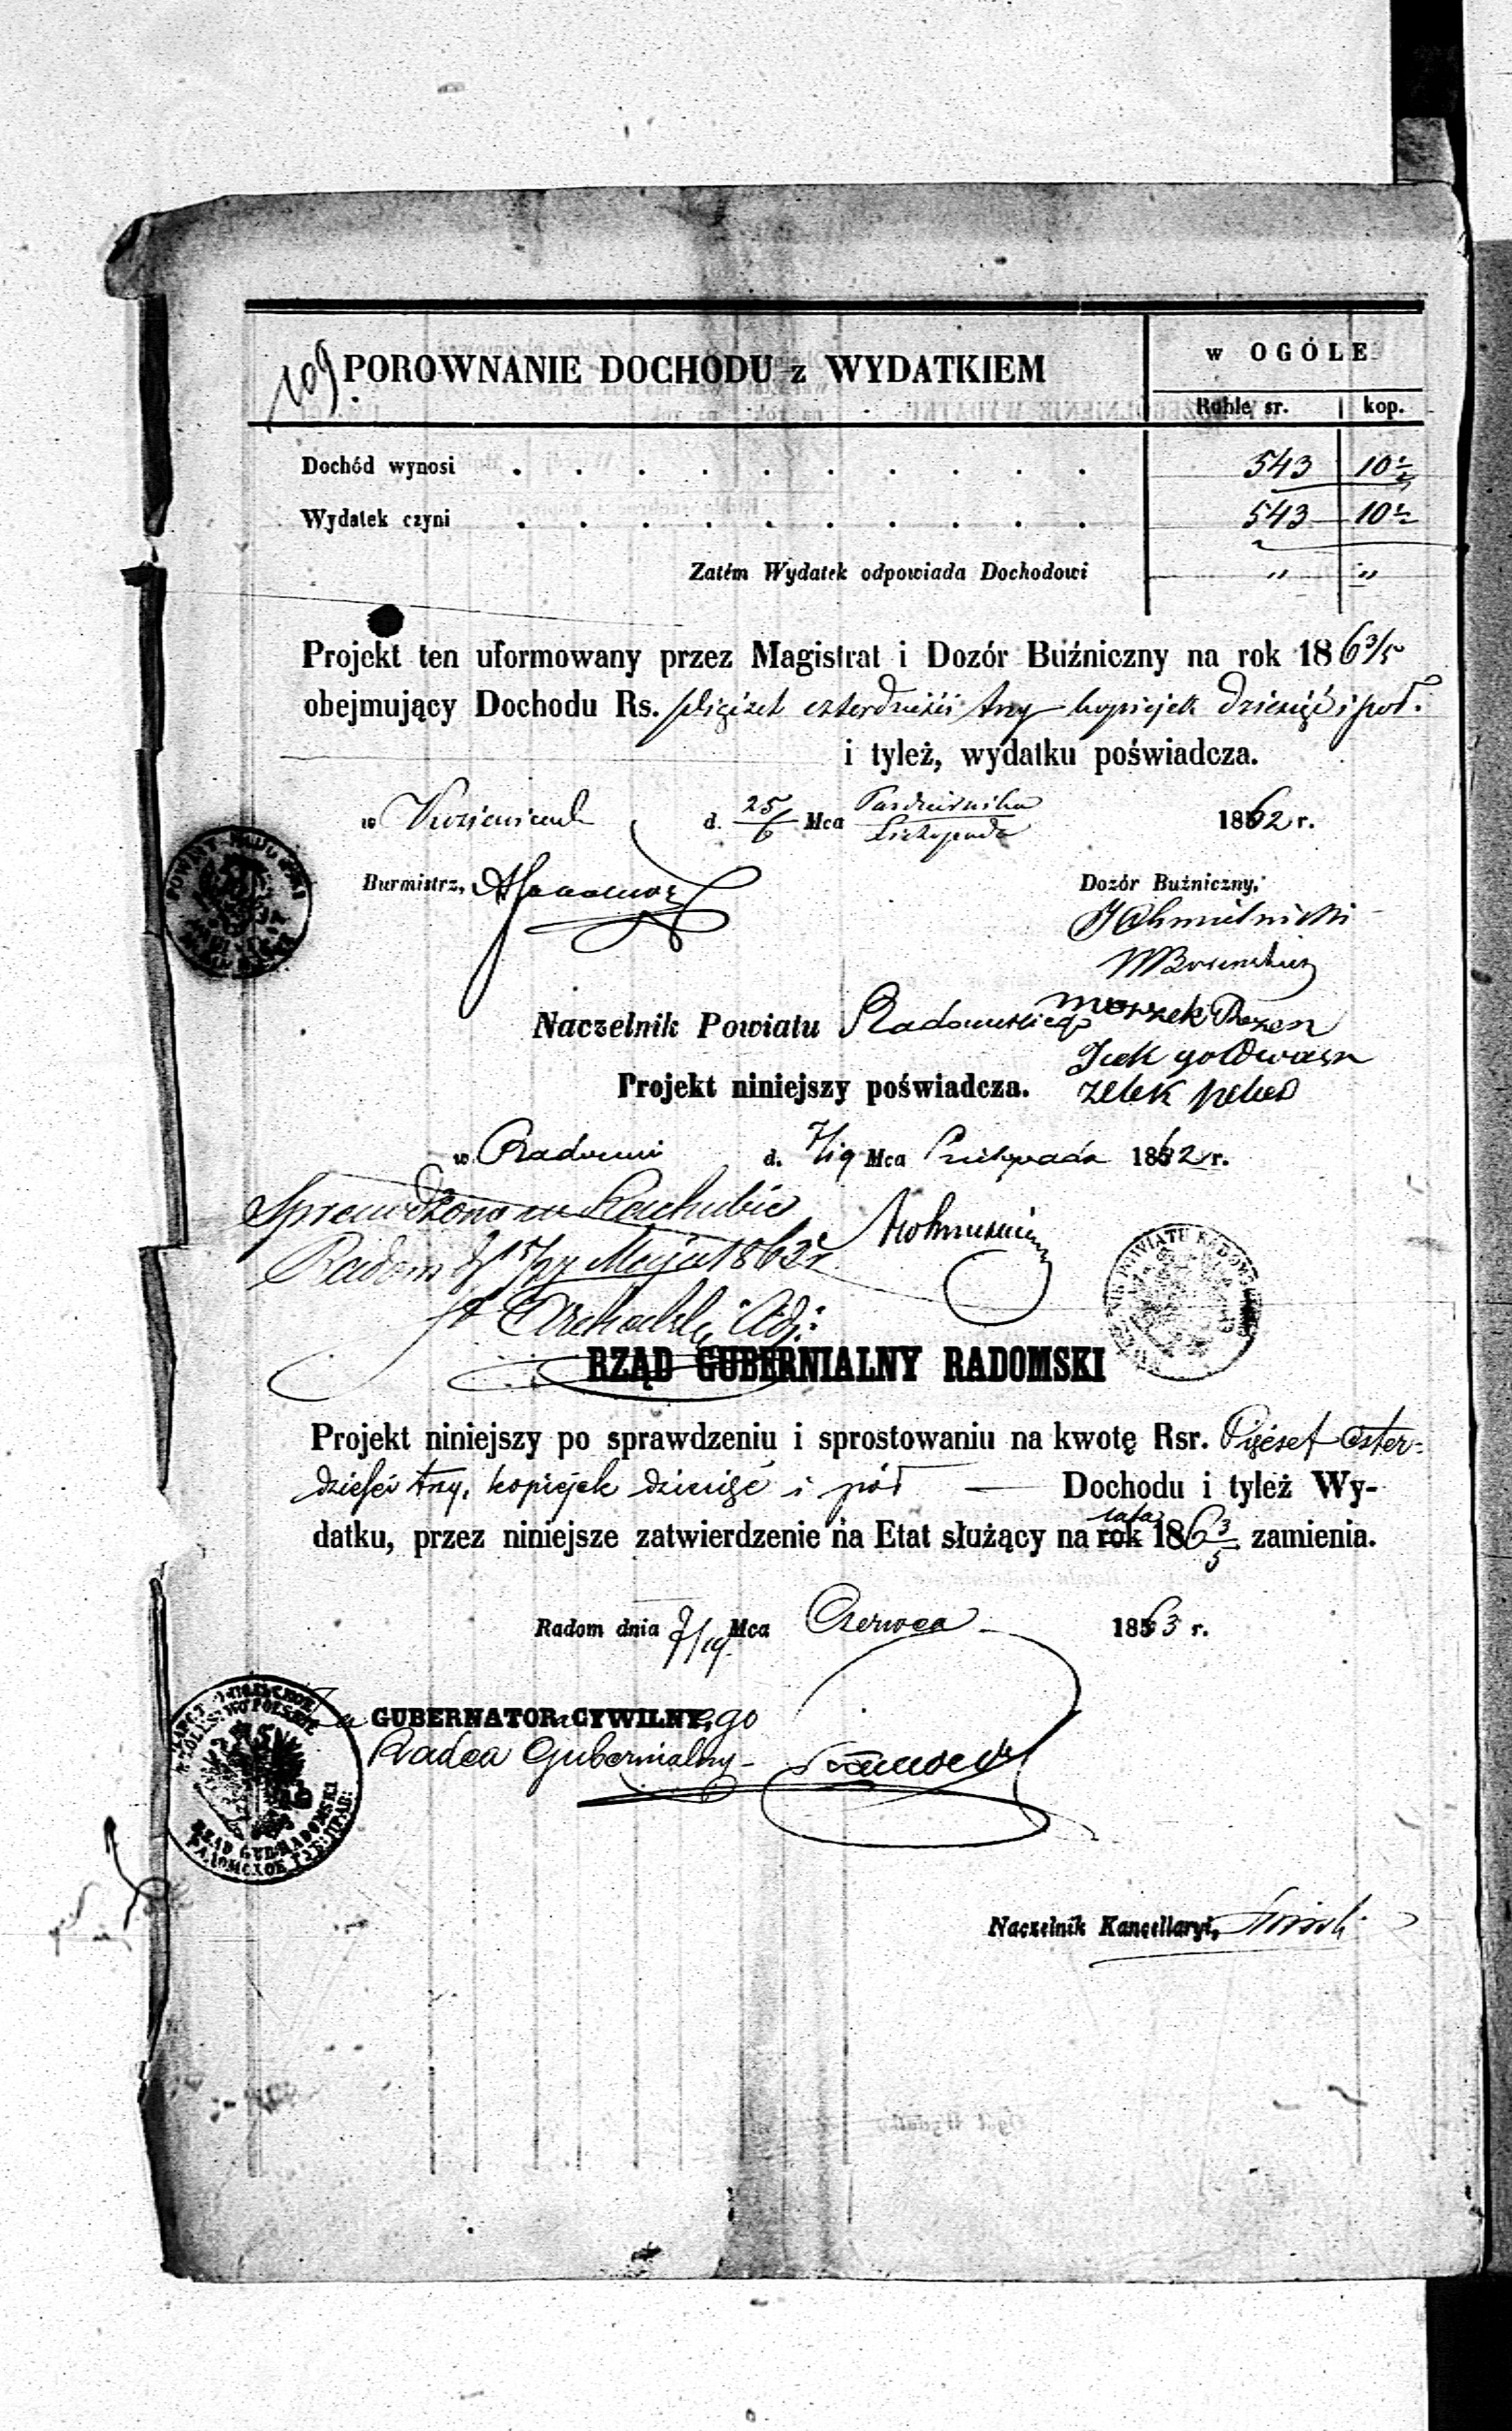 109
POROWNANIE DOCHODU z WYDATKIEM
w OGÓLE
Ruble sr. kop.
Dochód wynosi . . . . . . . . . . 543 10½
Wydatek czyni . . . . . . . . . . 543 10½
Zatém Wydatek odpowiada Dochodowi „ „
Projekt ten uformowany przez Magistrat i Dozór Buźniczny na rok 1863/5
obejmujący Dochodu Rs. pięćset czterdzieści trzy kopiejek dziesięć i poł.
i tyleż, wydatku poświadcza.
w Kozienicach d. 25/6 Mca Października/Listopada 1862 r.
Burmistrz,
Dozór Buźniczny,
JChmielnicki
Naczelnik Powiatu Radomskiego
Moszek Rozen
Icek goldwasr
Projekt niniejszy poświadcza.
zelek
w Radomiu d. 7/19 Mca Listopada 1862 r.
Sprawdzono w Rachubie
Radom d. 5/17 Maja 1863 r.
Adj:
RZĄD GUBERNIALNY RADOMSKI
Projekt niniejszy po sprawdzeniu i sprostowaniu na kwotę Rsr. Pięćset czter-
dzieści trzy, kopiejek dziesięć i pół — Dochodu i tyleż Wy-
datku, przez niniejsze zatwierdzenie na Etat służący na rok lata 186 3/5 zamienia.
Radom dnia 7/19 Mca Czerwca 1863 r.
Za GUBERNATORa CYWILNego
Radca Gubernialny
Naczelnik Kancellaryi,